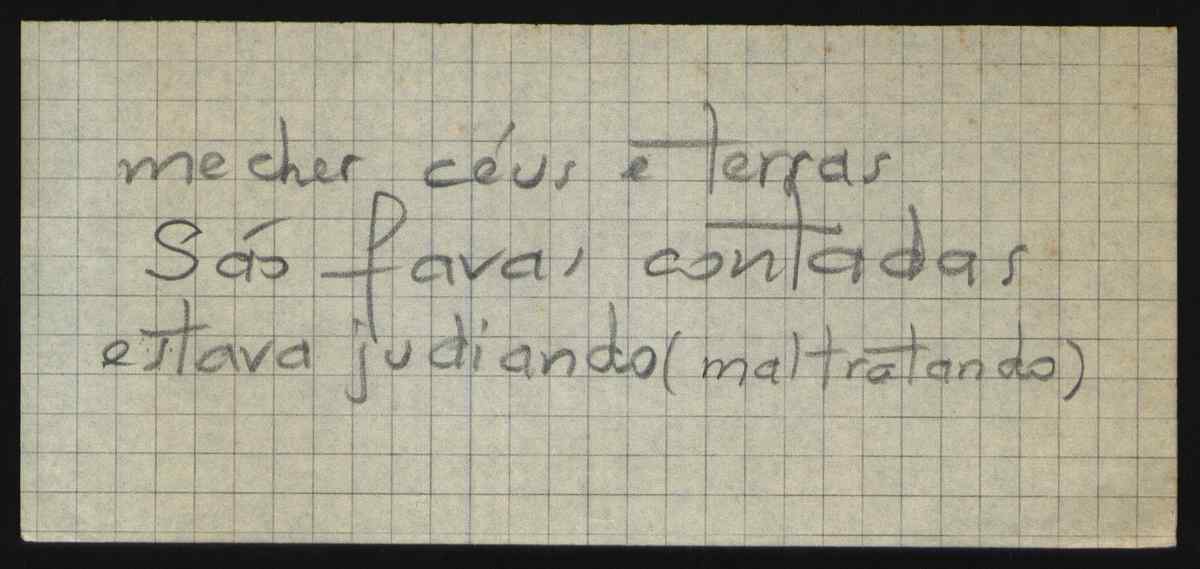 mecher céus e terras
São favas contadas
estava judiando (maltratando)